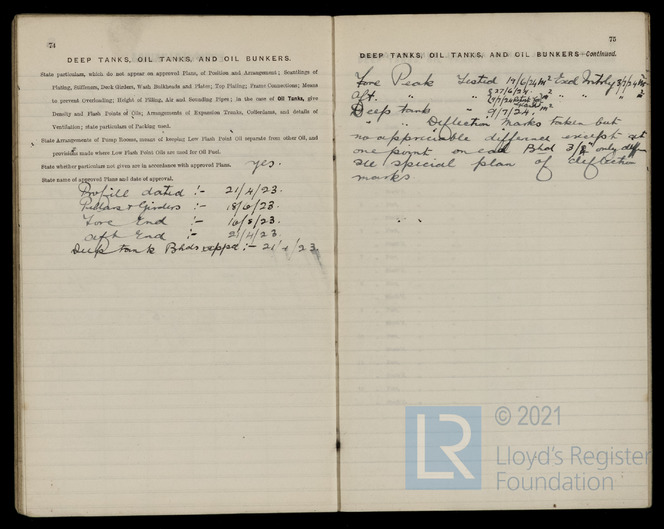 74
DEEP TANKS, OIL TANKS, AND OIL BUNKERS.
State particulars, which do not appear on approved Plans, of Position and Arrangement; Scantlings of
Plating, Stiffeners, Deck Girders, Wash Bulkheads and Plates; Top Plating; Frame Connections; Means
to prevent Overloading; Height of Filling, Air and Sounding Pipes; in the case of Oil Tanks, give
Density and Flash Points of Oils; Arrangements of Expansion Trunks, Cofferdams, and details of
Ventilation; state particulars of Packing used.
State Arrangements of Pump Rooms, means of keeping Low Flash Point Oil separate from other Oil, and
provision made where Low Flash Point Oils are used for Oil Fuel.
State whether particulars not given are in accordance with approved Plans. yes.
State name of approved Plans and date of approval.
Profill dated :- 21/4/23.
Pillars & Girders :- 18/6/23.
Fore End :- 10/8/23.
Aft End :- 21/4/23.
Deep tank Bhds :- 23
75
DEEP TANKS, OIL TANKS, AND OIL BUNKERS—Continued.
Fore Peak Tested 19/6/24
Aft. "
Deep tank " 9/7/24.
" " Deflection marks taken but
no appreciable difference except at
one point on Bhd 3/8" only
see special plan of deflection
marks.
LR
© 2021
Lloyd's Register
Foundation